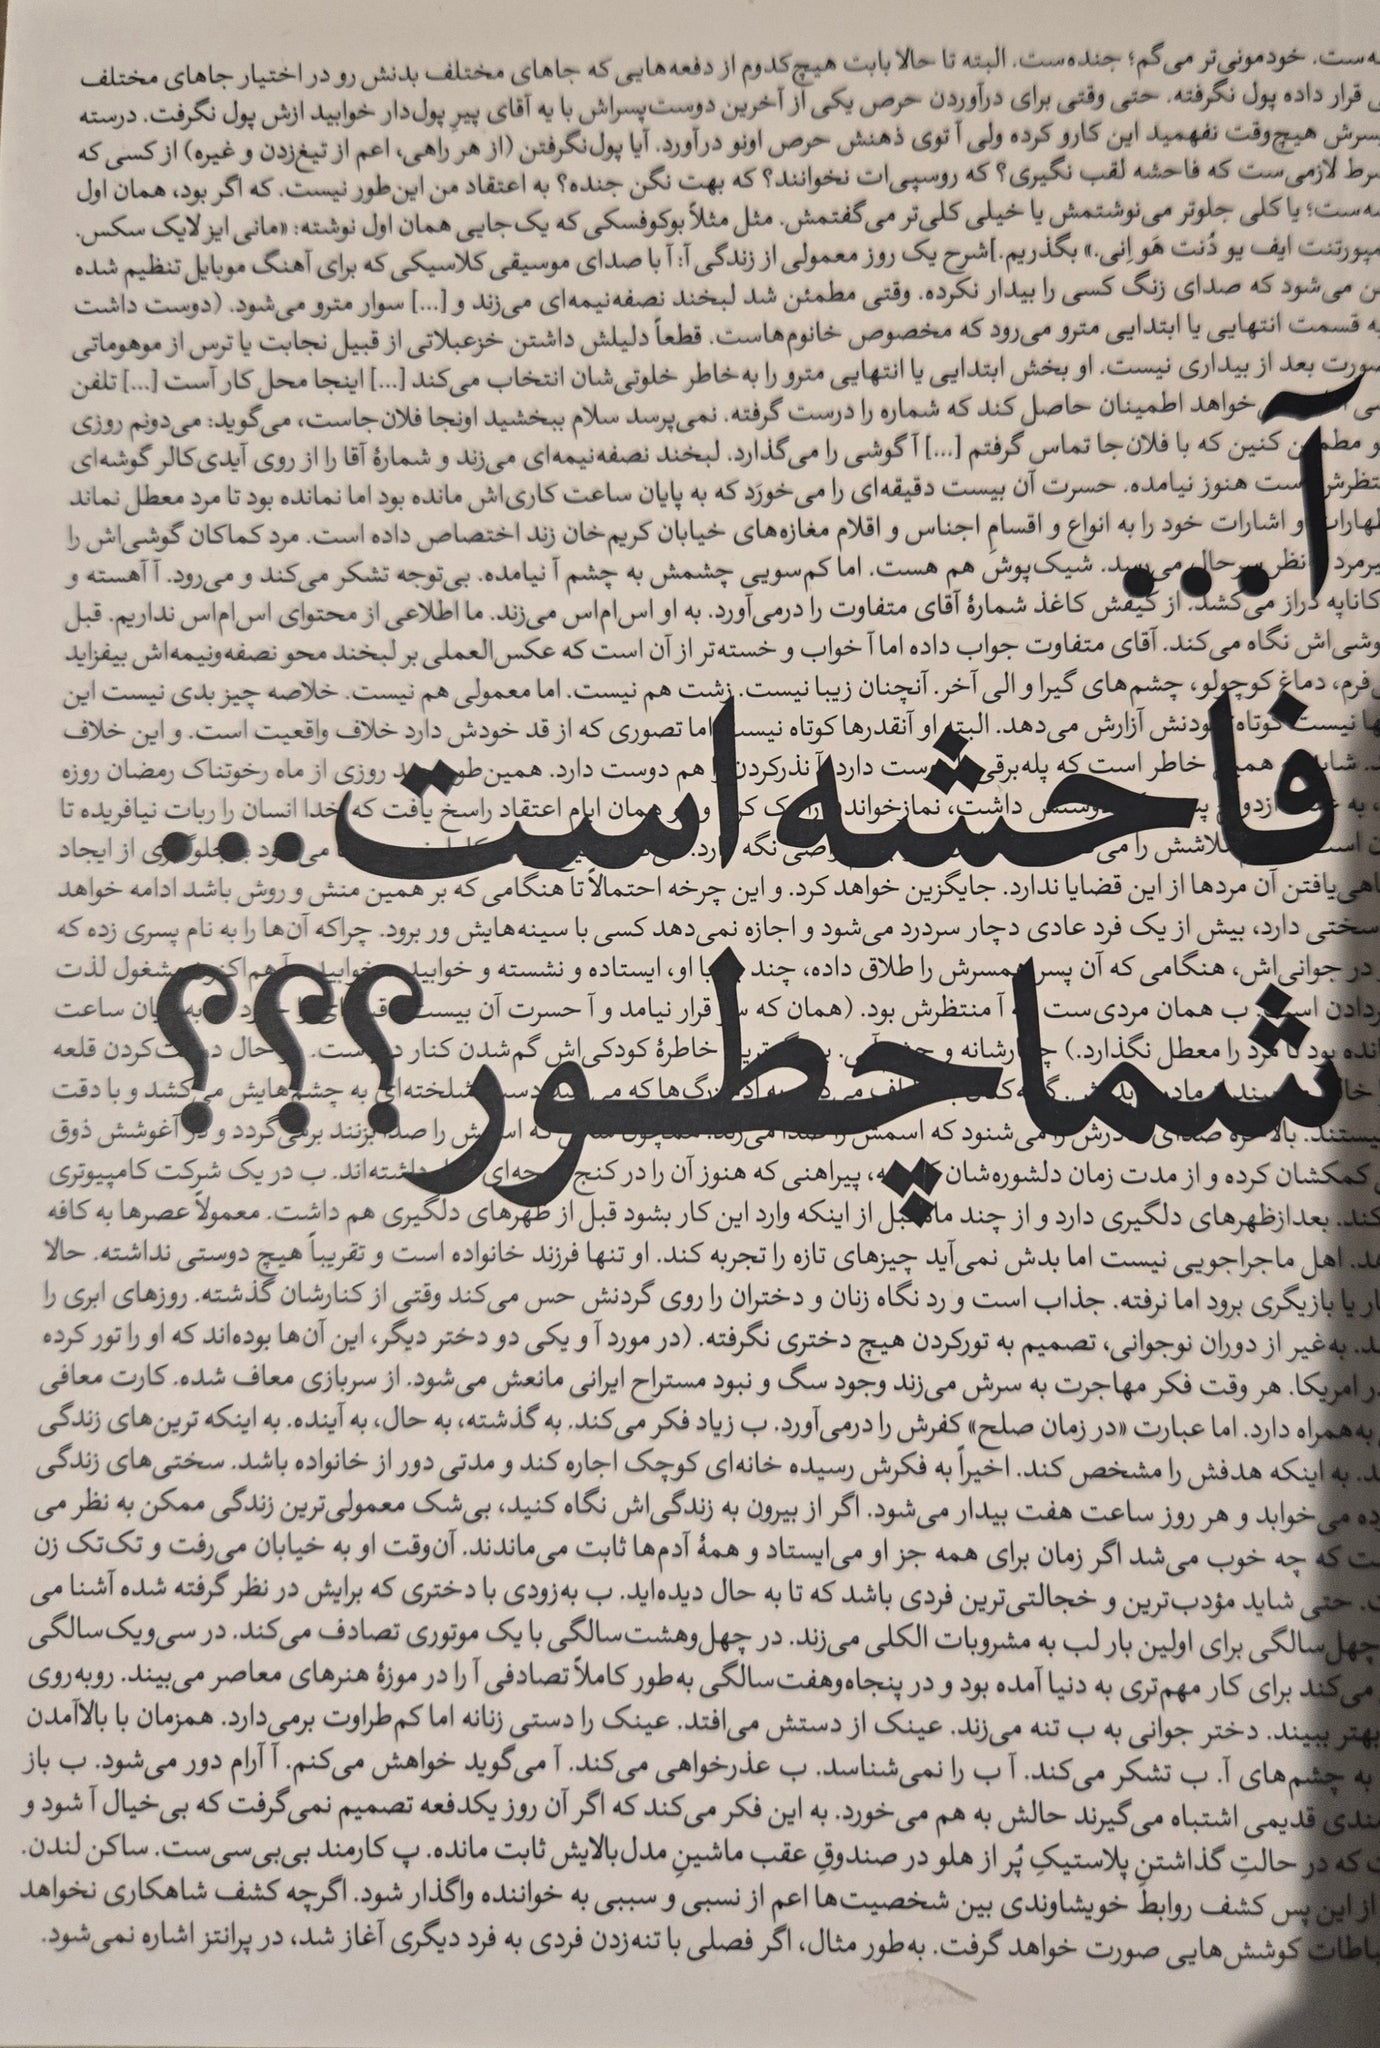 ست. خودمونی‌تر می‌گم؛ جنده‌ست. البته تا حالا بابت هیچ‌کدوم از دفعه‌هایی که جاهای مختلف بدنش رو در اختیار جاهای مختلف
قرار داده پول نگرفته. حتی وقتی برای درآوردن حرص یکی از آخرین دوست‌پسراش با یه آقای پیرِ پول‌دار خوابید ازش پول نگرفت. درسته
هیچ‌وقت نفهمید این کارو کرده ولی آ توی ذهنش حرص اونو درآورد. آیا پول‌نگرفتن (از هر راهی، اعم از تیغ‌زدن و غیره) از کسی که
لازمی‌ست که فاحشه لقب نگیری؟ که روسپی‌ات نخوانند؟ که بهت نگن جنده؟ به اعتقاد من این‌طور نیست. که اگر بود، همان اول
یا کلی جلوتر می‌نوشتمش یا خیلی کلی‌تر می‌گفتمش. مثل مثلاً بوکوفسکی که یک‌جایی همان اول نوشته: «مانی ایز لایک سکس.
ایف یو دُنت هَو اِنی.» بگذریم.]شرح یک روز معمولی از زندگی آ: آ با صدای موسیقی کلاسیکی که برای آهنگ موبایل تنظیم شده
می‌شود که صدای زنگ کسی را بیدار نکرده. وقتی مطمئن شد لبخند نصفه‌نیمه‌ای می‌زند و [...] سوار مترو می‌شود. (دوست داشت
قسمت انتهایی یا ابتدایی مترو می‌رود که مخصوص خانوم‌هاست. قطعاً دلیلش داشتن خزعبلاتی از قبیل نجابت یا ترس از موهوماتی
صورت بعد از بیداری نیست. او بخش ابتدایی یا انتهایی مترو را به‌خاطر خلوتی‌شان انتخاب می‌کند [...] اینجا محل کار آست [...] تلفن
خواهد اطمینان حاصل کند که شماره را درست گرفته. نمی‌پرسد سلام ببخشید اونجا فلان‌جاست، می‌گوید: می‌دونم روزی
کنین که با فلان‌جا تماس گرفتم [...] آ گوشی را می‌گذارد. لبخند نصفه‌نیمه‌ای می‌زند و شمارهٔ آقا را از روی آیدی‌کالر گوشه‌ای
هنوز نیامده. حسرت آن بیست دقیقه‌ای را می‌خورَد که به پایان ساعت کاری‌اش مانده بود اما نمانده بود تا مرد معطل نماند
و اشارات خود را به انواع و اقسامِ اجناس و اقلام مغازه‌های خیابان کریم‌خان زند اختصاص داده است. مرد کماکان گوشی‌اش را
آ...
نظر سرحال می‌رسد. شیک‌پوش هم هست. اما کم‌سویی چشمش به چشم آ نیامده. بی‌توجه تشکر می‌کند و می‌رود. آ آهسته و
کاناپه دراز می‌کشد. از کیفش کاغذ شمارهٔ آقای متفاوت را درمی‌آورد. به او اس‌ام‌اس می‌زند. ما اطلاعی از محتوای اس‌ام‌اس نداریم. قبل
نگاه می‌کند. آقای متفاوت جواب داده اما آ خواب و خسته‌تر از آن است که عکس‌العملی بر لبخند محو نصفه‌ونیمه‌اش بیفزاید
فرم، دماغ کوچولو، چشم‌های گیرا و الی آخر. آنچنان زیبا نیست. زشت هم نیست. اما معمولی هم نیست. خلاصه چیز بدی نیست این
نیست کوتاه آزارش می‌دهد. البته او آنقدرها کوتاه نیست اما تصوری که از قد خودش دارد خلاف واقعیت است. و این خلاف
خاطر است که پله‌برقی دوست دارد. آ نذرکردن را هم دوست دارد. روزی از ماه رخوتناک رمضان روزه
فاحشه است...
داشت، همان ایام اعتقاد راسخ یافت که خدا انسان را ربات نیافریده تا
از ایجاد
یافتن آن مردها از این قضایا ندارد. جایگزین خواهد کرد. و این چرخه احتمالاً تا هنگامی که بر همین منش و روش باشد ادامه خواهد
سختی دارد، بیش از یک فرد عادی دچار سردرد می‌شود و اجازه نمی‌دهد کسی با سینه‌هایش ور برود. چراکه آن‌ها را به نام پسری زده که
در جوانی‌اش، هنگامی که آن پسر همسرش را طلاق داده، چند با او، ایستاده و نشسته و مشغول لذت
ب همان مردی‌ست آ منتظرش بود. (همان که سر قرار نیامد و آ حسرت آن بیست ساعت
بود تا مرد را معطل نگذارد.) خاطرهٔ کودکی‌اش گم‌شدن کنار قلعه
شما چطور؟؟؟
به چشم‌هایش می‌کشد و با دقت
را می‌شنود که اسمش را صدا می‌زند. را صدا بزنند برمی‌گردد و در آغوشش ذوق
کمکشان کرده و از مدت زمان دلشوره‌شان پیراهنی که هنوز آن را در کنج داشته‌اند. ب در یک شرکت کامپیوتری
بعدازظهرهای دلگیری دارد و از چند ماه قبل از اینکه وارد این کار بشود قبل از ظهرهای دلگیری هم داشت. معمولاً عصرها به کافه
اهل ماجراجویی نیست اما بدش نمی‌آید چیزهای تازه را تجربه کند. او تنها فرزند خانواده است و تقریباً هیچ دوستی نداشته. حالا
یا بازیگری برود اما نرفته. جذاب است و رد نگاه زنان و دختران را روی گردنش حس می‌کند وقتی از کنارشان گذشته. روزهای ابری را
به‌غیر از دوران نوجوانی، تصمیم به تورکردن هیچ دختری نگرفته. (در مورد آ و یکی دو دختر دیگر، این آن‌ها بوده‌اند که او را تور کرده
امریکا. هر وقت فکر مهاجرت به سرش می‌زند وجود سگ و نبود مستراح ایرانی مانعش می‌شود. از سربازی معاف شده. کارت معافی
به‌همراه دارد. اما عبارت «در زمان صلح» کفرش را درمی‌آورد. ب زیاد فکر می‌کند. به گذشته، به حال، به آینده. به اینکه ترین‌های زندگی
به اینکه هدفش را مشخص کند. اخیراً به فکرش رسیده خانه‌ای کوچک اجاره کند و مدتی دور از خانواده باشد. سختی‌های زندگی
می‌خوابد و هر روز ساعت هفت بیدار می‌شود. اگر از بیرون به زندگی‌اش نگاه کنید، بی‌شک معمولی‌ترین زندگی ممکن به نظر می
که چه خوب می‌شد اگر زمان برای همه جز او می‌ایستاد و همهٔ آدم‌ها ثابت می‌ماندند. آن‌وقت او به خیابان می‌رفت و تک‌تک زن
حتی شاید مؤدب‌ترین و خجالتی‌ترین فردی باشد که تا به حال دیده‌اید. ب به‌زودی با دختری که برایش در نظر گرفته شده آشنا می
چهل‌سالگی برای اولین بار لب به مشروبات الکلی می‌زند. در چهل‌وهشت‌سالگی با یک موتوری تصادف می‌کند. در سی‌ویک‌سالگی
می‌کند برای کار مهم‌تری به دنیا آمده بود و در پنجاه‌وهفت‌سالگی به‌طور کاملاً تصادفی آ را در موزهٔ هنرهای معاصر می‌بیند. روبه‌روی
بهتر ببیند. دختر جوانی به ب تنه می‌زند. عینک از دستش می‌افتد. عینک را دستی زنانه اما کم‌طراوت برمی‌دارد. همزمان با بالاآمدن
به چشم‌های آ. ب تشکر می‌کند. آ ب را نمی‌شناسد. ب عذرخواهی می‌کند. آ می‌گوید خواهش می‌کنم. آ آرام دور می‌شود. ب باز
قدیمی اشتباه می‌گیرند حالش به هم می‌خورد. به این فکر می‌کند که اگر آن روز یکدفعه تصمیم نمی‌گرفت که بی‌خیال آ شود و
که در حالتِ گذاشتنِ پلاستیکِ پُر از هلو در صندوقِ عقب ماشینِ مدل‌بالایش ثابت مانده. پ کارمند بی‌بی‌سی‌ست. ساکن لندن.
از این پس کشف روابط خویشاوندی بین شخصیت‌ها اعم از نسبی و سببی به خواننده واگذار شود. اگرچه کشف شاهکاری نخواهد
کوشش‌هایی صورت خواهد گرفت. به‌طور مثال، اگر فصلی با تنه‌زدن فردی به فرد دیگری آغاز شد، در پرانتز اشاره نمی‌شود.